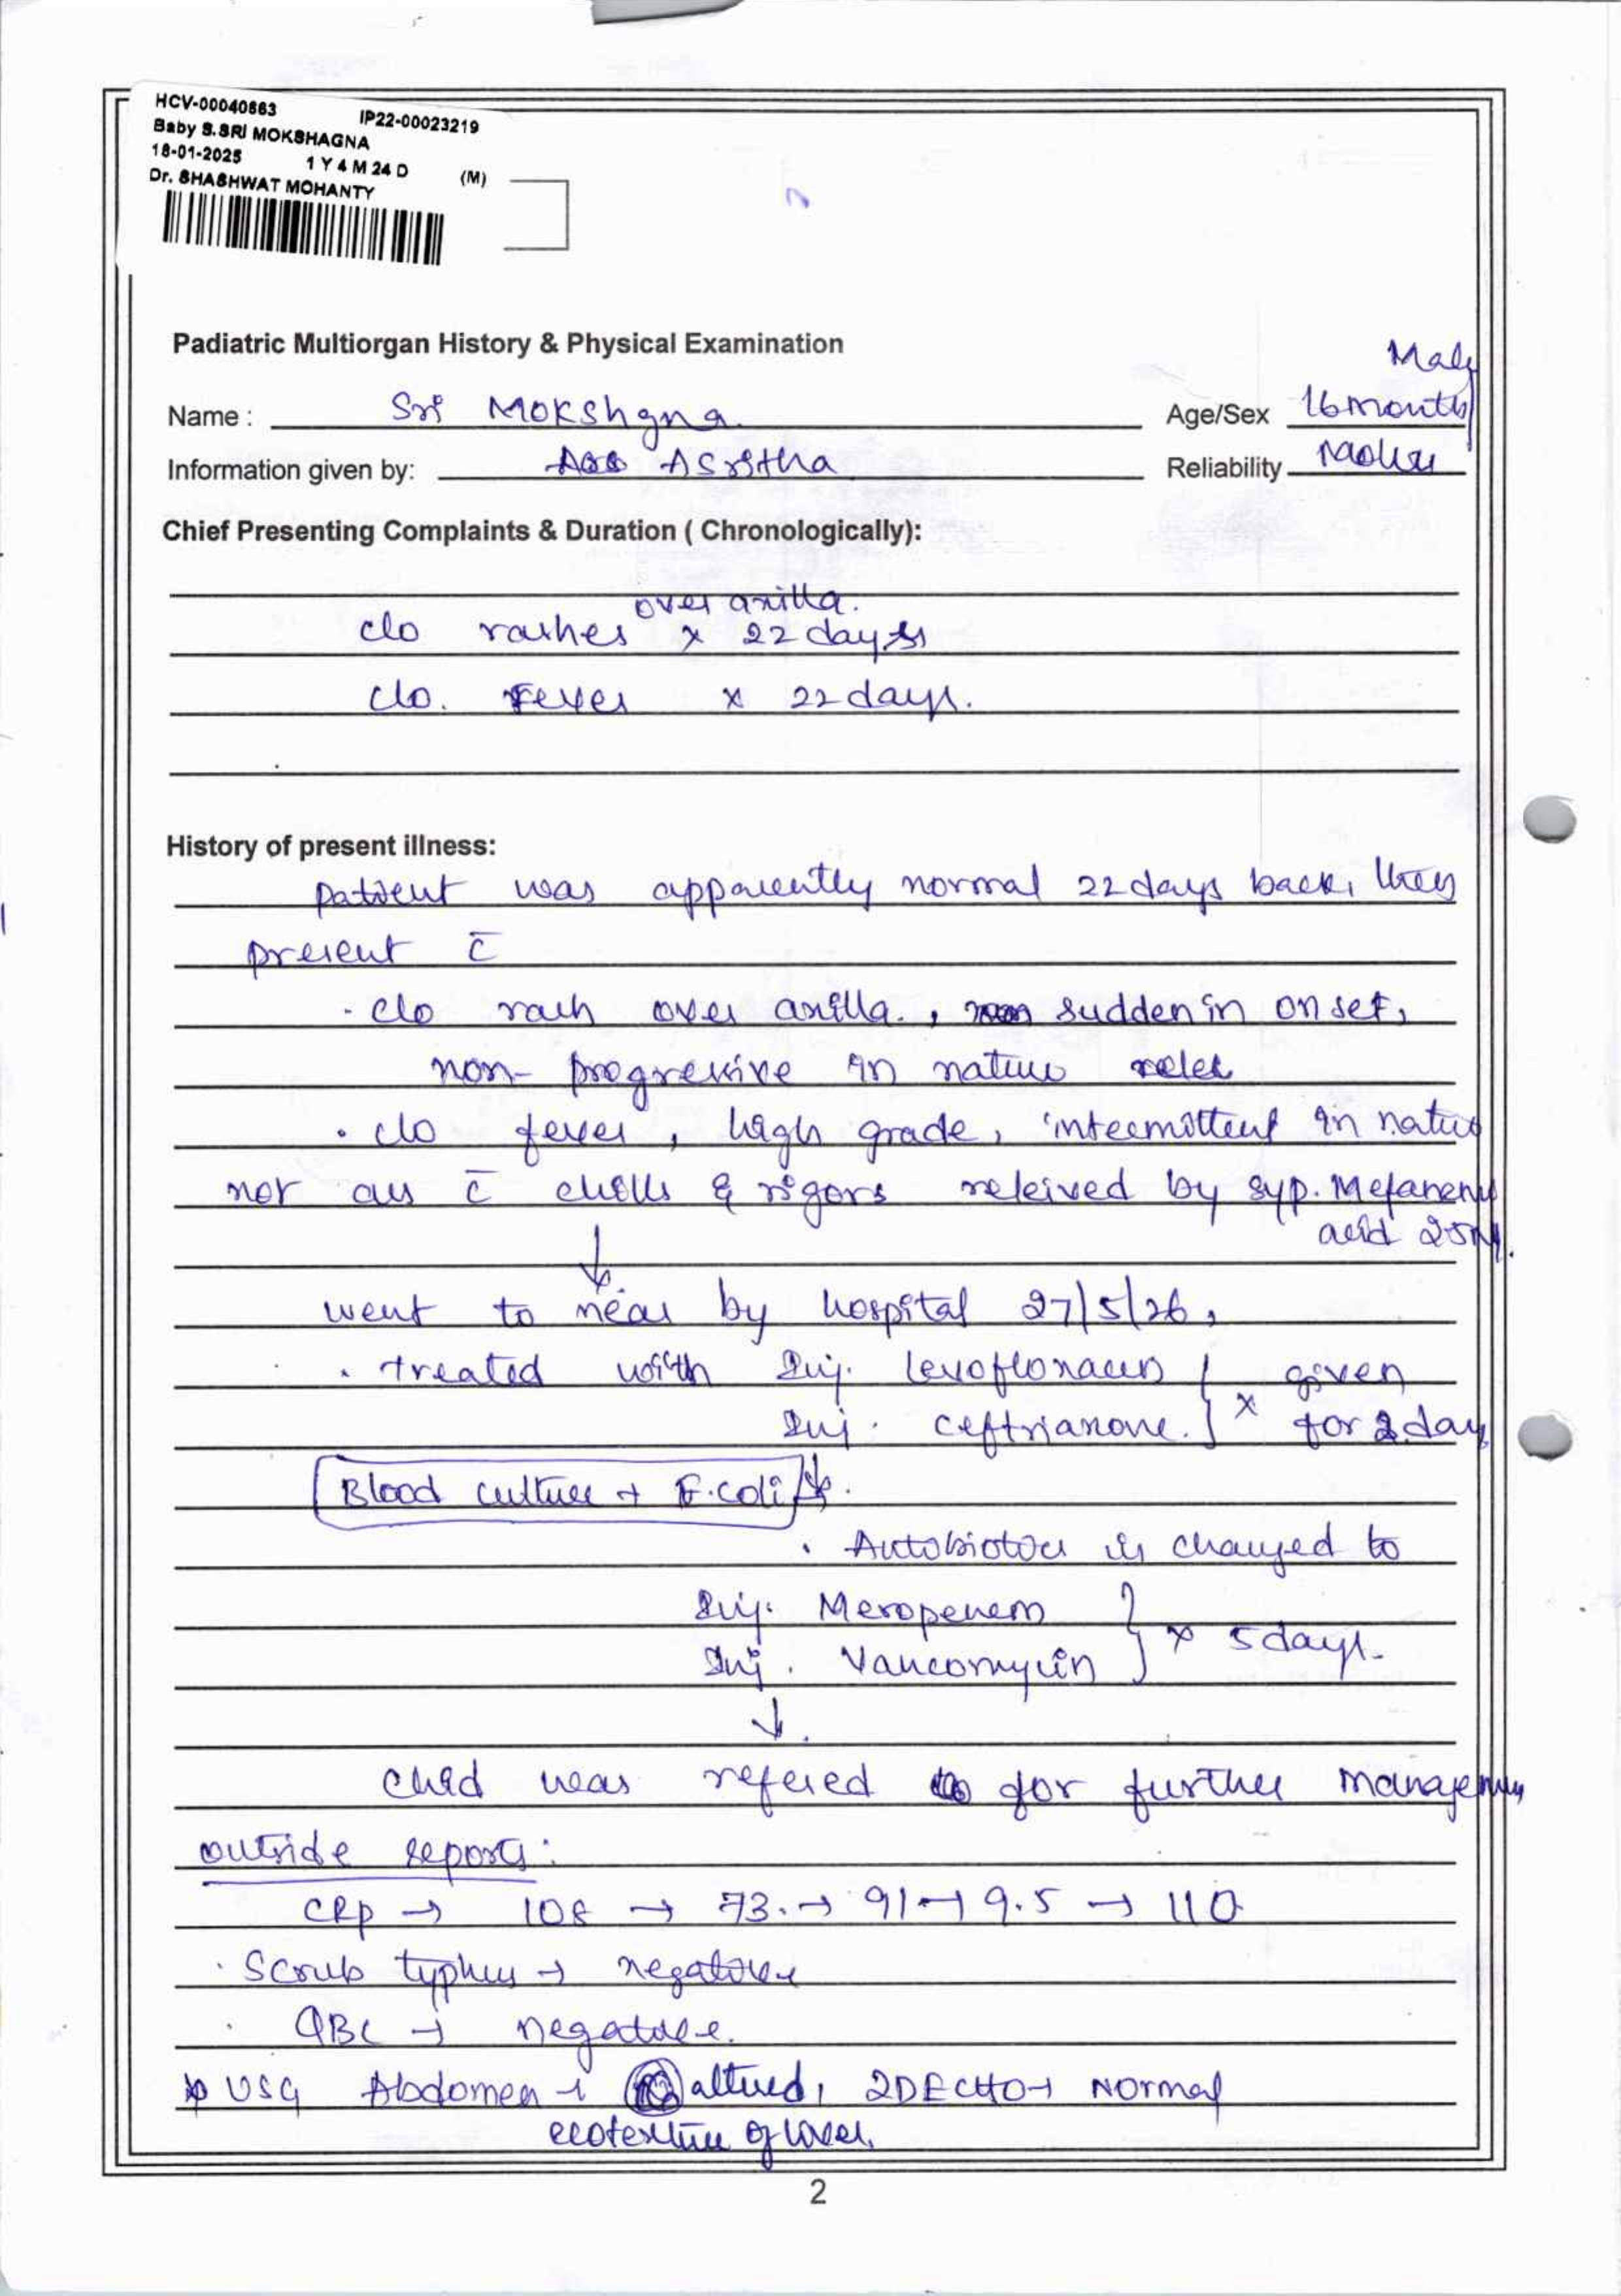 HCV-00040663 IP22-00023219
Baby S.SRI MOKSHAGNA
18-01-2025 1 Y 4 M 24 D (M)
Dr. SHASHWAT MOHANTY
Padiatric Multiorgan History & Physical Examination
Male
Name : Sri Mokshgna Age/Sex 16 month
Information given by: Asritha Reliability
Chief Presenting Complaints & Duration ( Chronologically):
over axilla.
c/o rashes x 22 days
c/o. Fever x 22 days.
History of present illness:
patient was apparently normal 22 days back, they
present c̄
- c/o rash over axilla. , sudden in onset,
non- progressive in nature
. c/o fever , high grade, intermittent in nature
not ass c̄ chills & rigors releived by syp. Mefanemic
acid
↓
went to near by hospital 27/5/26,
. treated with Inj. levofloxacin } given
Inj. ceftriaxone. } x for 2 day
Blood culture + E.coli
. Antibiotics is changed to
Inj. Meropenem }
Inj. Vancomycin } x 5 days.
↓
child was refered for further management
outside reports:
CRP → 108 → 73. → 91 → 9.5 → 110
. Scrub typhus → negative
. QBC → negative.
USG Abdomen → altered, 2DECHO → Normal
ecotexture of liver.
2